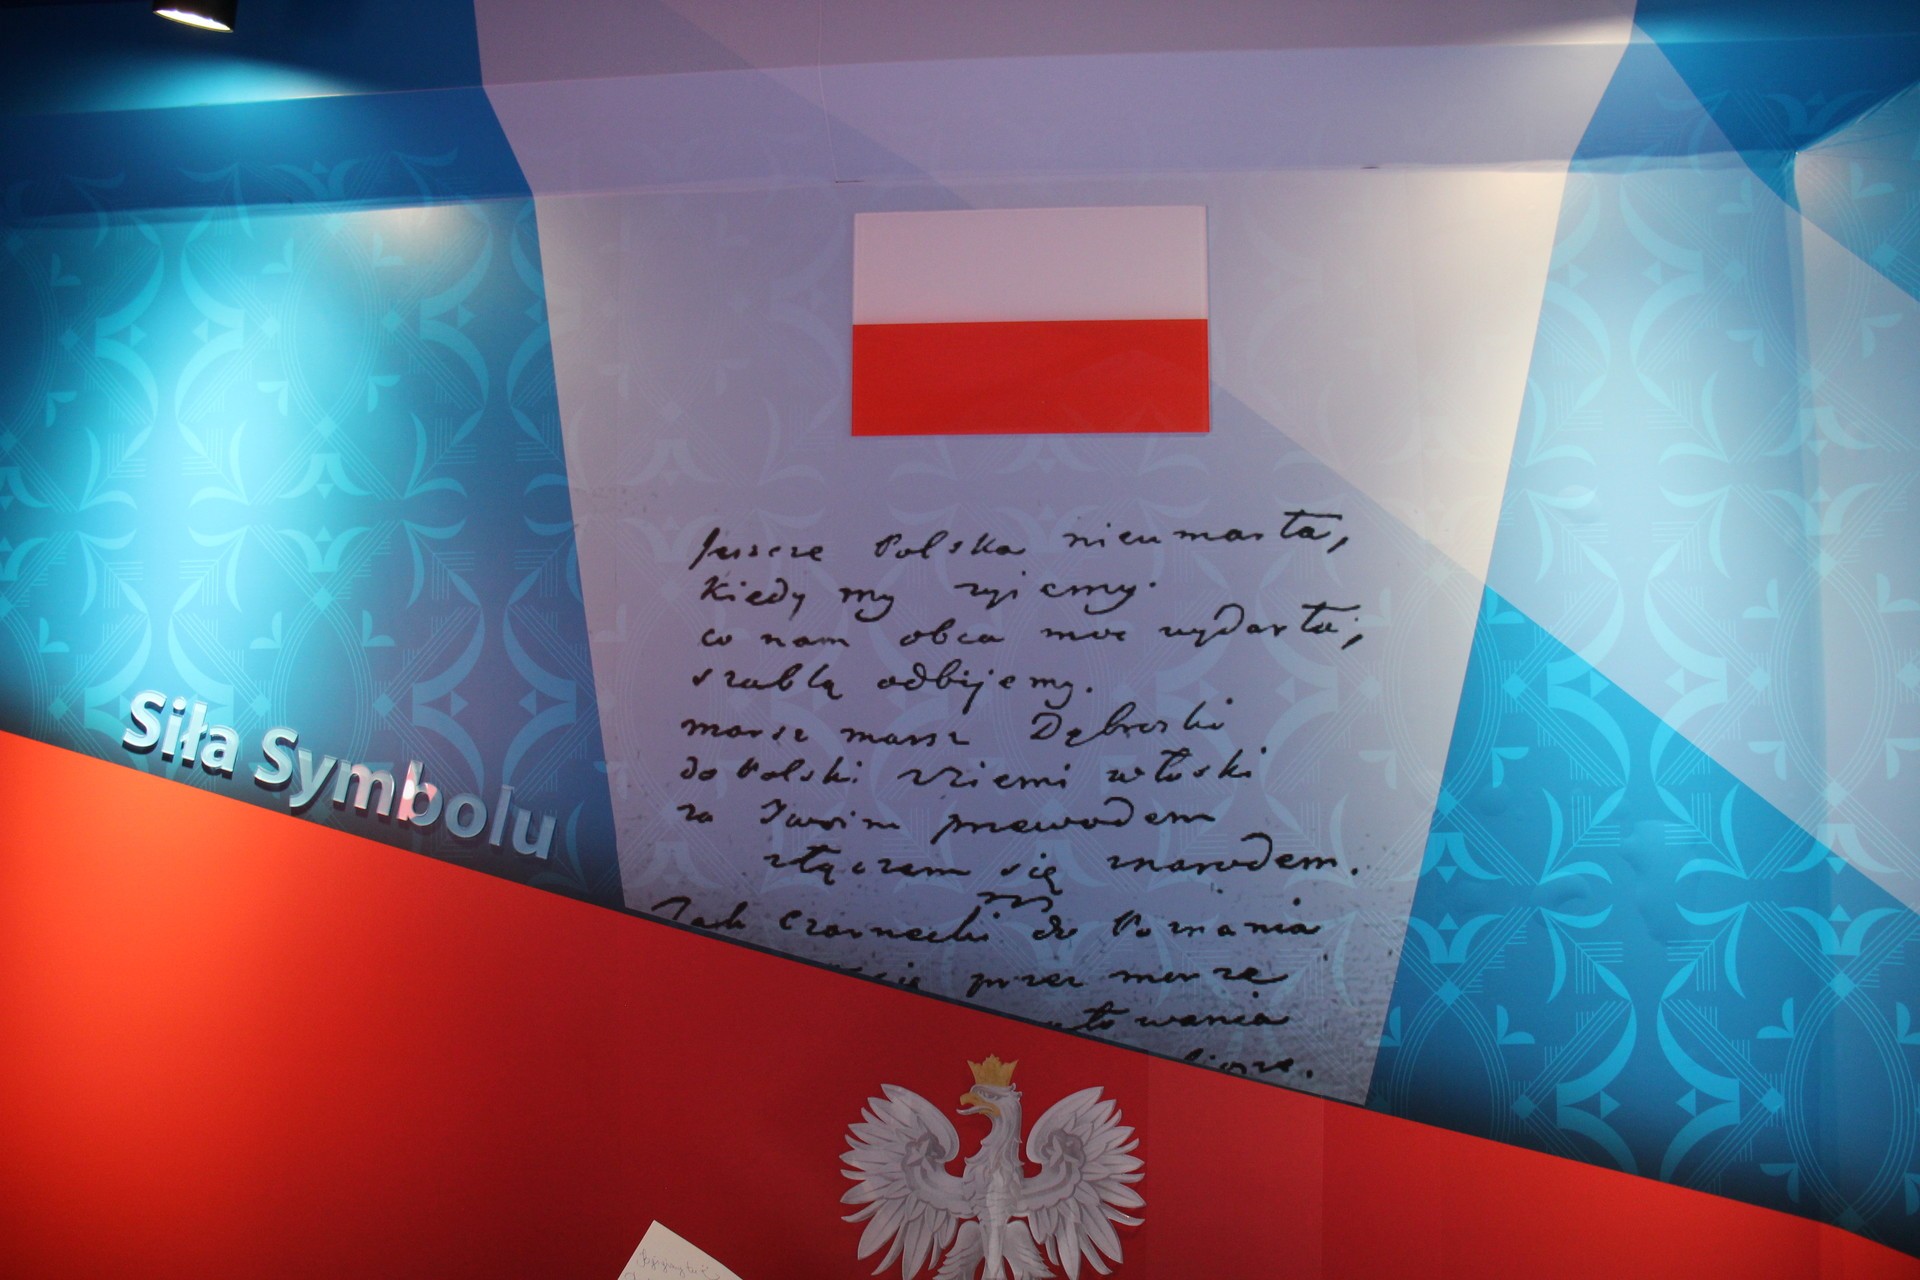 Siła Symbolu
Jeszcze Polska nieumarła,
kiedy my zyiemy.
co nam obca moc wydarła,
szablą odbijemy.
marsz marsz Dąbroski
do Polski zziemi włoski
za Twoim przewodem
złączem się znarodem.
Jak Czarnecki do Poznania
przez morze